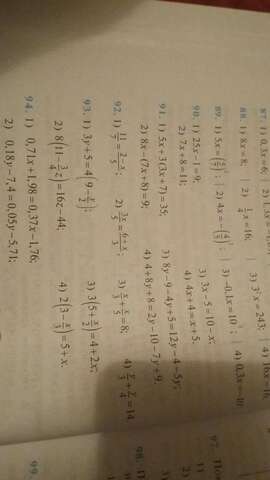 87. 1) 0,3x=6;
88. 1) 8x=8; | 2) 1/4 x=16; | 3) 3³x=243;
89. 1) 5x= | 2) 4x= | 3) -0,1x=10 ; | 4) 0,3x=
90. 1) 25x-1=9; 3) 3x-5=10-x;
2) 7x+8=11; 4) 4x+4=x+5.
91. 1) 5x+3(3x+7)=35; 3) 8y-9-4y+5=12y-4-5y;
2) 8x-(7x+8)=9; 4) 4+8y+8=2y-10-7y+9.
92. 1) 11/7=(2-x)/5; 2) 3x/5=(6+x)/3; 3) x/3+x/5=8; 4) y/3+y/4=14.
93. 1) 3y+5=4(9-y/2); 3) 3(5+x/2)=4+2x;
2) 8(11-3/4 z)=16z-44; 4) 2(3-x/3)=5+x.
94. 1) 0,71x+1,98=0,37x-1,76;
2) 0,18y-7,4=0,05y-5,71;
97.
1)
2)
98.
99.